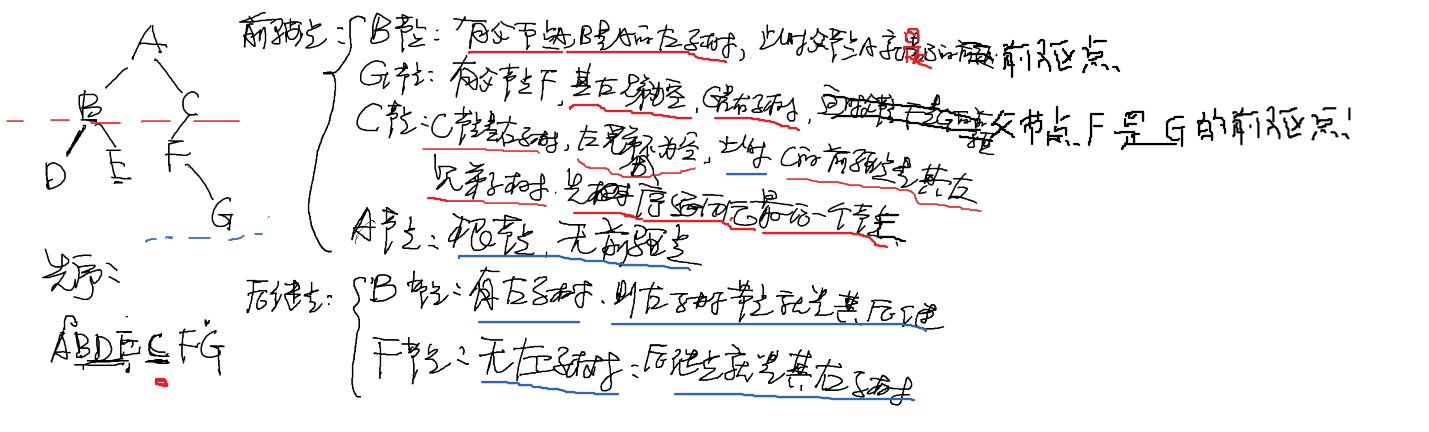 A
B C
D E F
G
先序:
ABDE C FG
前驱点:
B节点:有父节点A,B是A的左子树,此时父节点A就是B的前驱点
G节点:有父节点F,其左兄弟空,G是右子树,父节点F是G的前驱点!
C节点:C节点是右子树,左兄弟不为空,此时C的前驱点是其左
兄弟子树先序遍历后最后一个节点
A节点:根节点,无前驱点
后继点:
B节点:有左子树,则左子树节点就是其后继
F节点:无左子树:后继点就是其右子树